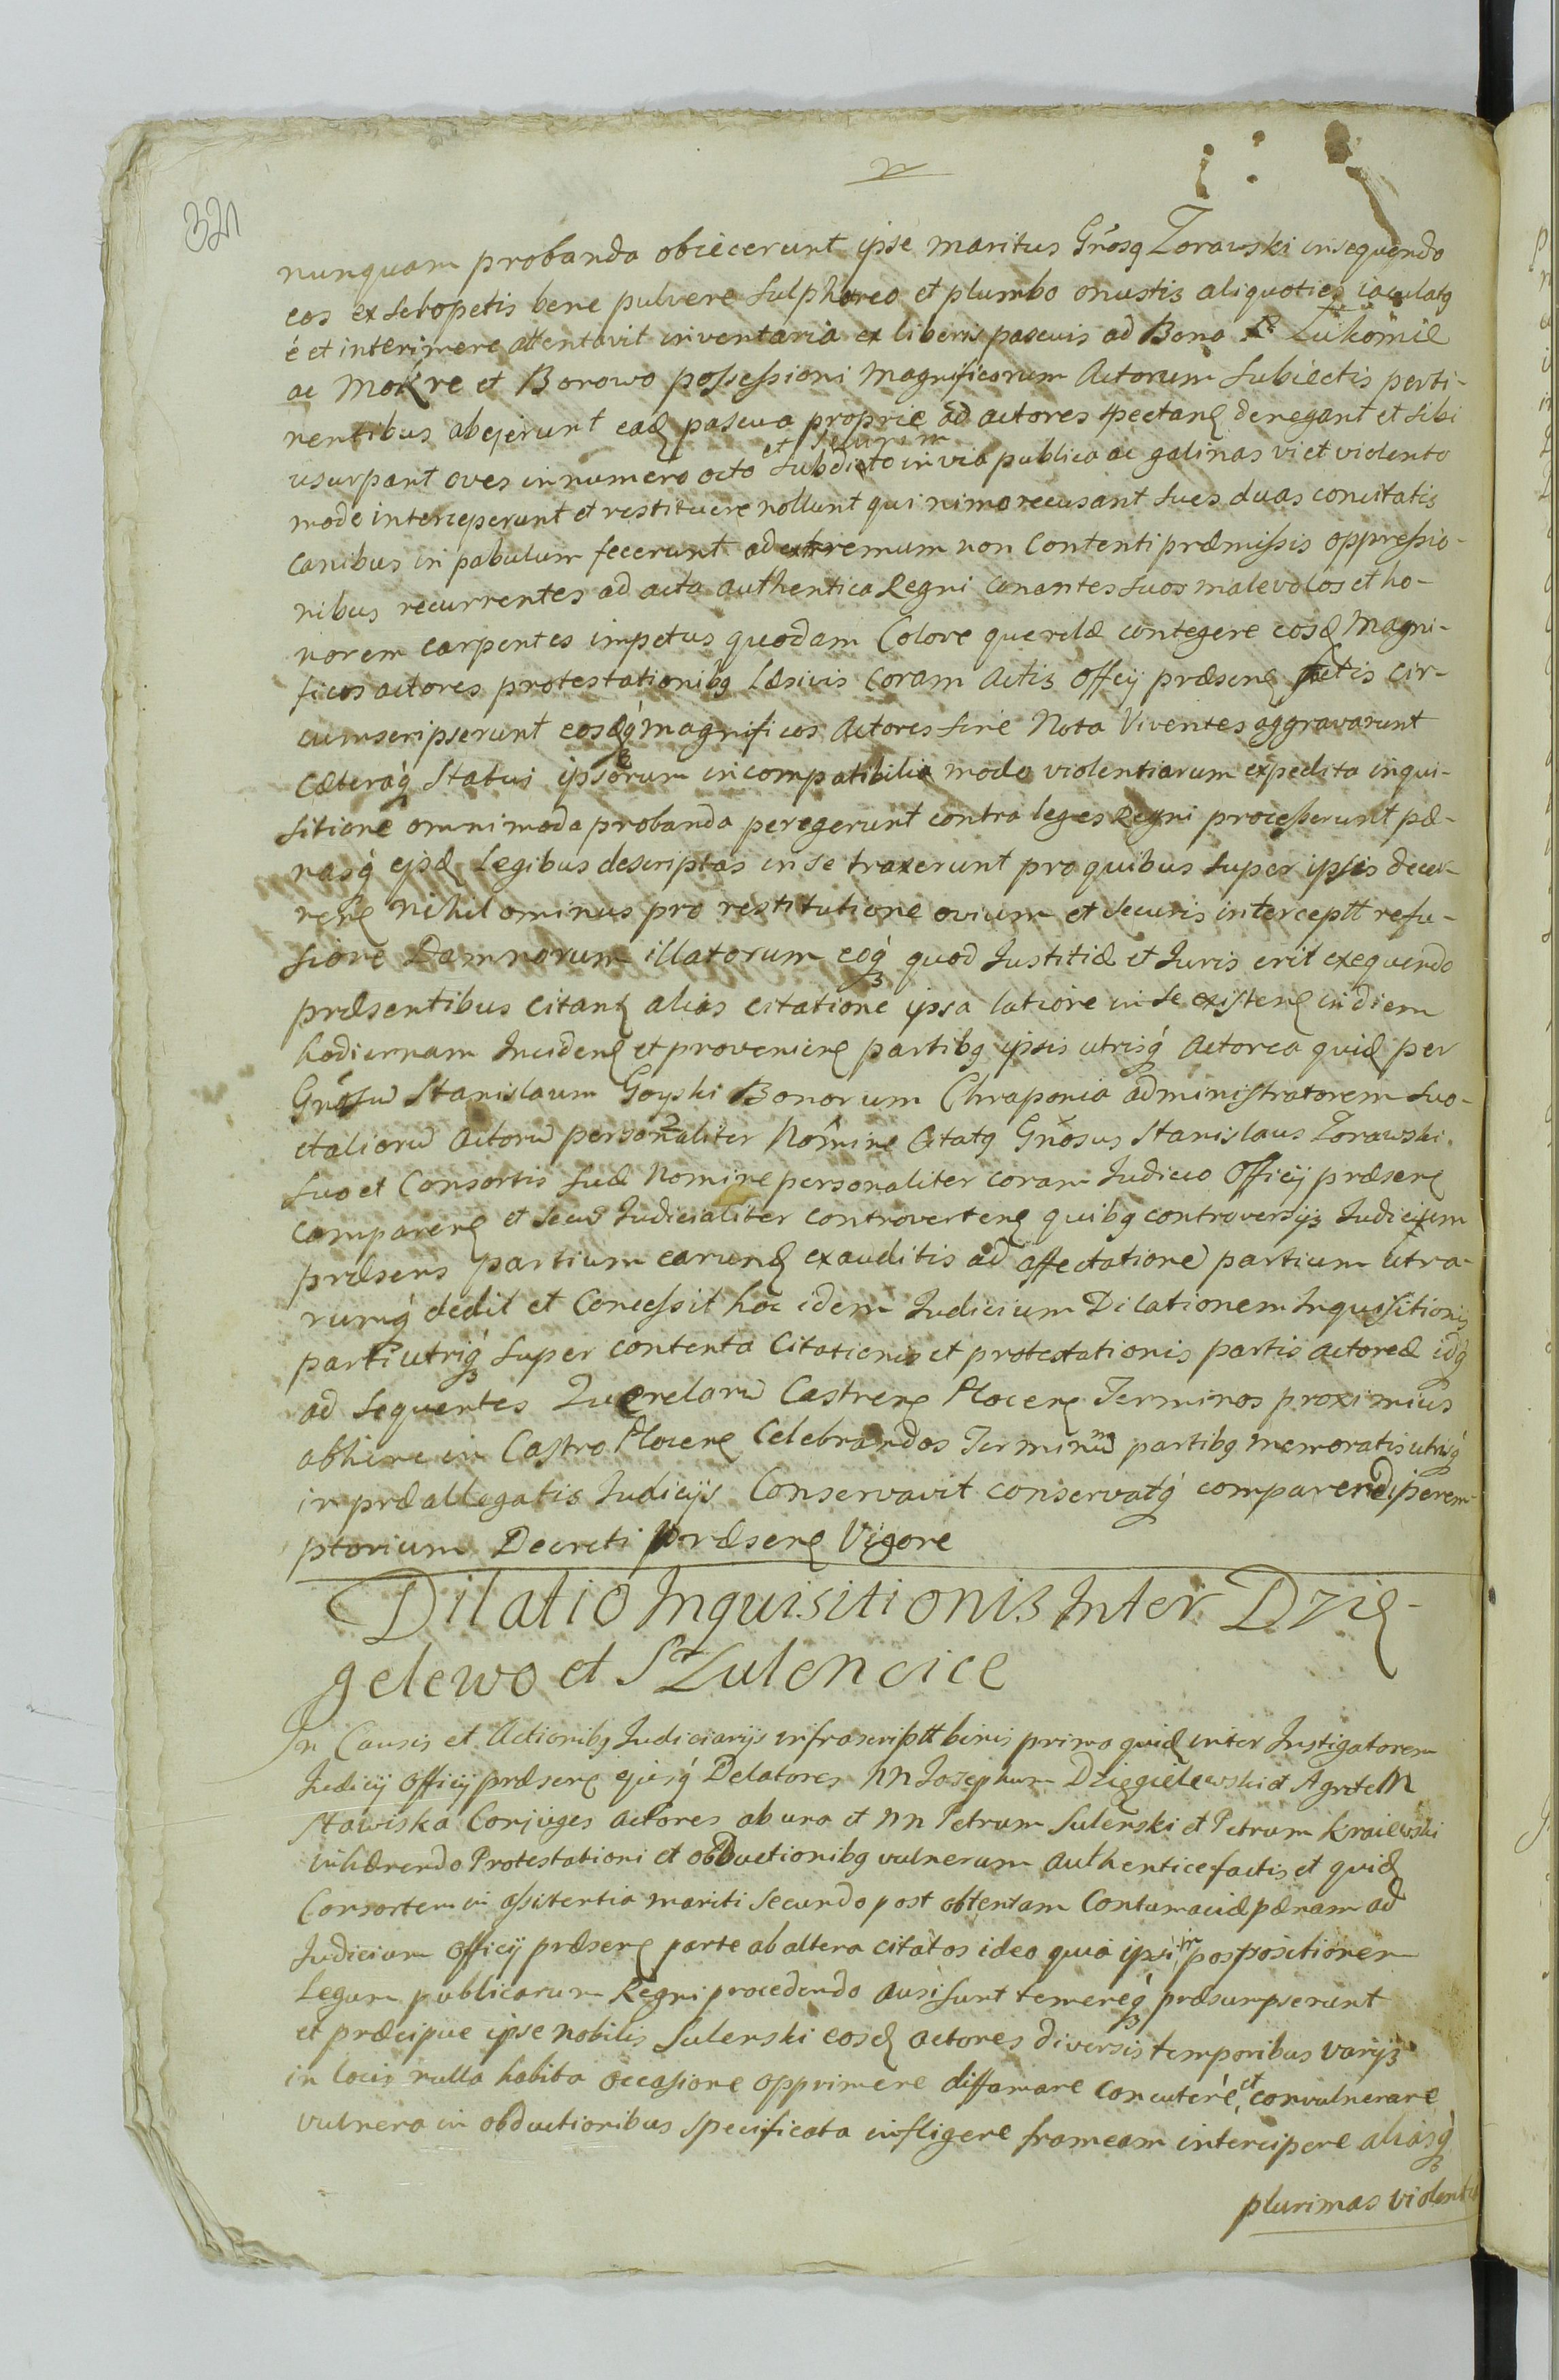 321
nunquam probanda obiecerunt ipse maritus Gnosq Zorawski insequendo
eos ex sclopetis bene pulvere sulphureo et plumbo onustis aliquoties iaculatq
é et interimere attentavit inventaria ex liberis pascuis ad Bona Lukomie
ac Mokre et Borowo possessioni Magnificorum Actorum subiectis perti-
nentibus abegerunt eaq pascua proprie ad actores spectanq denegant et sibi
usurpant oves in numero octo et securim subdito in via publica ac galinas vi et violento
modo interceperunt et restituere nollunt qui nimo recusant sues duas concitatis
canibus in pabulum fecerunt ad extremum non Contenti præmissis oppressio-
nibus recurrentes ad acta authentica Regni conantes suos malevolos et ho-
norem carpentes impetus quodam Colore querelæ contegere eosq Magni-
ficos actores protestationibq læsivis Coram Actis Officij præsenq factis cir-
cumscripserunt eosqq magnificos Actores sine Nota Viventes aggravarunt
Cæteraq Statui ipsorum incompatibilia modo violentiarum expedita inqui-
sitione omnimoda probanda peregerunt contra leges Regni processerunt pæ-
nasq ejsq Legibus descriptas in se traxerunt pro quibus super ipsis decer-
nenq nihilominus pro restitutione ovium et securis interceptt refu-
sione Damnorum illatorum eoq quod Justitiæ et Juris erit exequendo
præsentibus citanq alias citatione ipsa latiore in se existenq in diem
hodiernam Incidenq et provenienq partibq ipsis utrisq Actorea quiq per
Gnosu Stanislaum Goyski Bonorum Chraponia administratorem suo
et aliorũ Actorũ personaliter Nomine Citatq Gnosus Stanislaus Zorawski
suo et Consortis suæ Nomine personaliter coram Judicio Officij præsenq
Comparenq et secũ Judicialiter controvertenq quibq controversijs Judicium
præsens partium earunq exauditis ad affectationẽ partium utra-
rumq dedit et Concessit hoc idem Judicium Dilationem Inquisitionis
parti utriq super contenta Citationis et protestationis partis actoreæ idq
ad sequentes Querelarũ Castrenq Plocenq Terminos proximius
abhinc in Castro Plocenq Celebrandos Terminũ partibq memoratis utrisq
in præallegatis Judicijs Conservavit conservatq comparendi perem-
ptorium Decreti præsenq Vigore
Dilatio Inquisitionis Inter Dzię-
gelewo et Szulencice
In Causis et Actionibq Judiciarijs infrascriptt binis prima quiq inter Instigatorem
Judicij Officij præsenq ejusq Delatores NN Josephum Dzięgielewski et Agnetem
Stawiska Conjuges actores ab una et NN Petrum Sulenski et Petrum Kraiewski
inhærendo Protestationi et obductionibq vulnerum authentice factis et quiq
Consortem in assistentia mariti secundo post obtentam Contumaciæ pænam ad
Judicium Officij præsenq parte ab altera citatos ideo quia ipsi in postpositionem
Legum publicarum Regni procedendo ausi sunt temereq præsumpserunt
et præcipue ipse nobilis Sulenski eosq actores diversis temporibus varijs
in locis nulla habita occasione opprimere diffamare concutere et convulnerare
vulnera in obductionibus specificata infligere frameam intercipere aliasq
plurimas violentias